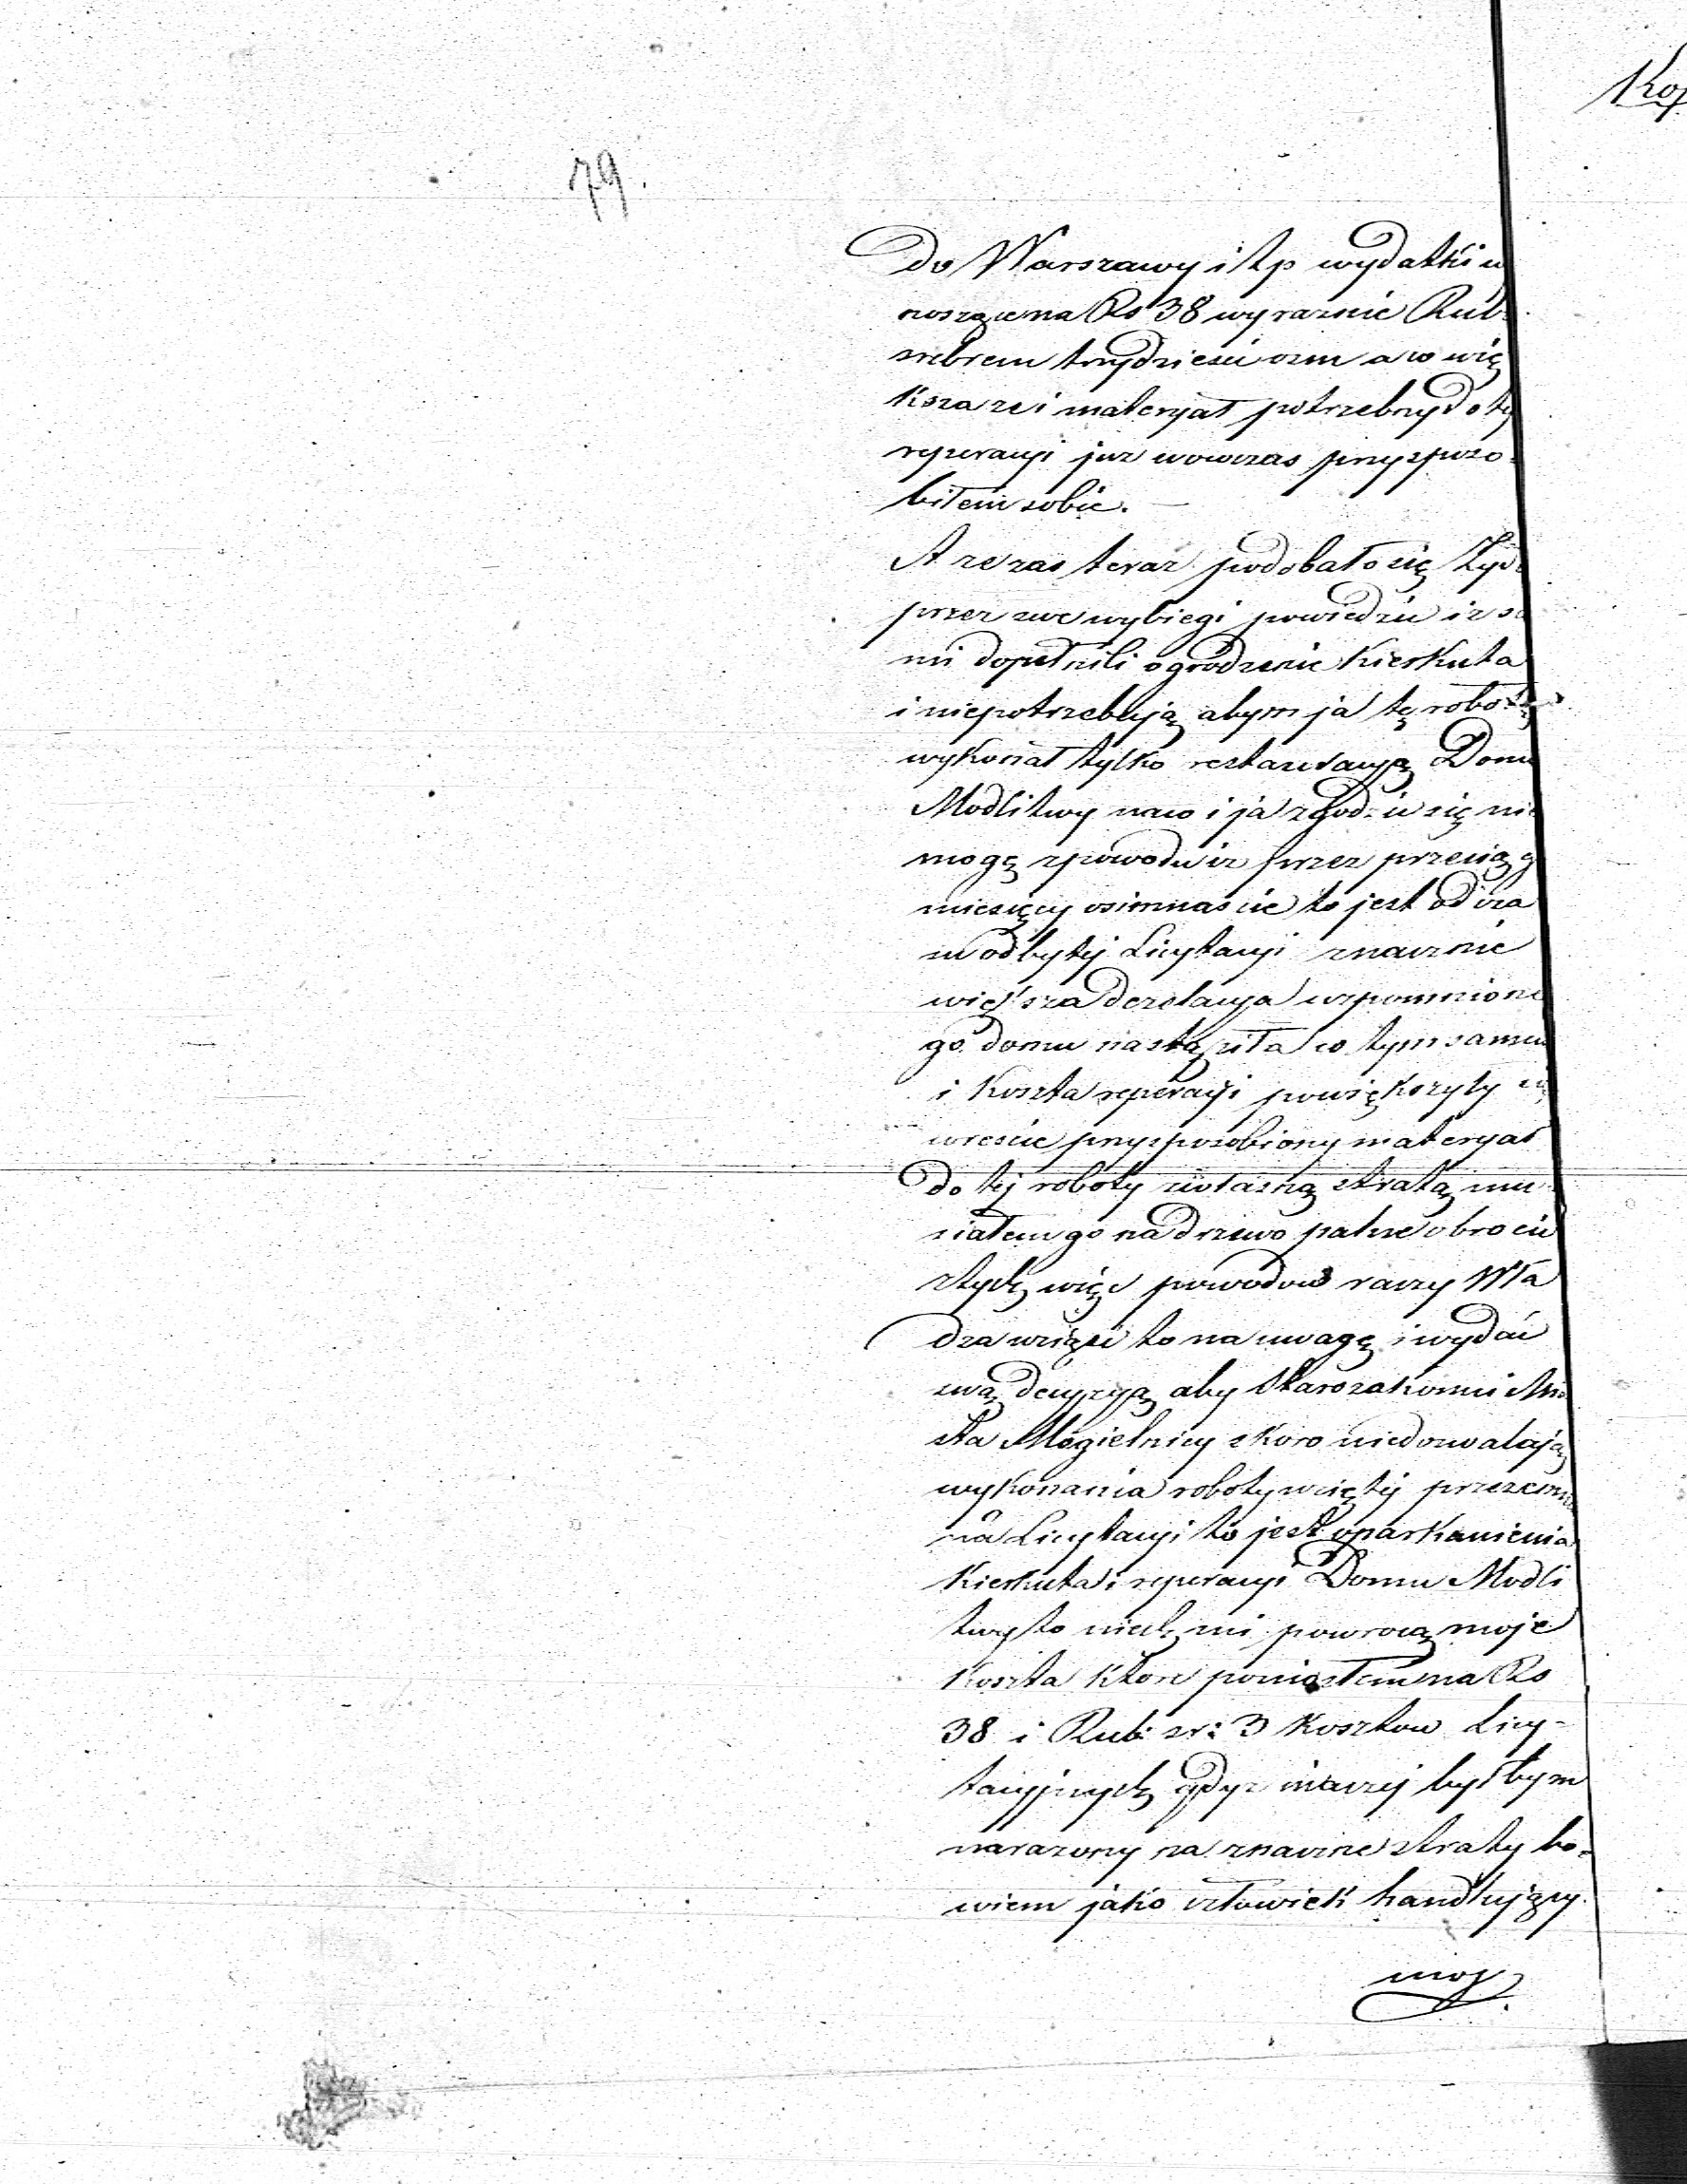 Kop
79.
do Warszawy i tp wydatki w
noszące na Rs 38 wyraznie Rub:
srebrem trzydziesci osm a co wię
ksza ze i materyał potrzebny do tej
reperacyi juz wowczas przysposo-
biłem sobie. —
A ze zas teraz podobało się Żyd
przez swe wybiegi powiedziec iz sa
mi dopełnili ogrodzenie Kierkuta
i niepotrzebują abym ja tę robotę
wykonał tylko restauracyją Domu
Modlitwy na co i ja zgodzic się nie
mogę zpowodu iz przez przeciąg
miesięcy osimnascie to jest od cza
su odbytej Licytacyi znacznie
większa dezelacyja wspomnione
go domu nastąpiła co tym samem
i Koszta reperacyi powiększyły się
wrescie przysposobiony materyał
do tej roboty zwłasną stratą mu
siałem go na drzewo palne obrocic
ztych więc powodow raczy Wła
dza wziąsc to na uwagę i wydac
swą decyzyją aby Starozakonni Mia
sta Mogielnicy skoro niedozwalają
wykonania roboty wziętej przezemnie
na Licytacyi to jest oparkanienia
Kierkuta i reperacyi Domu Modli
twy to niech mi powrocą moje
Koszta ktore poniosłem na Rs
38 i Rub: sr: 3 Kosztow Licy-
tacyjnych gdyz inaczej byłbym
narazony na znaczne straty bo-
wiem jako człowiek handlujący
moj